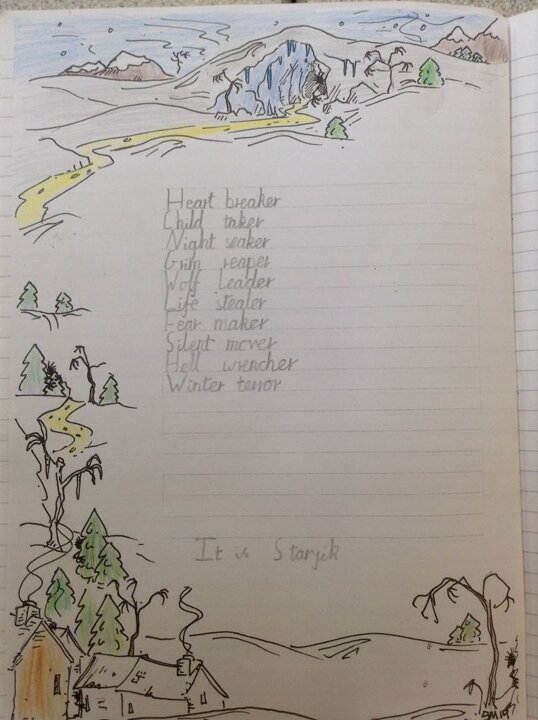 Heart breaker
Child taker
Night seaker
Grim reaper
Wolf Leader
Life stealer
Fear maker
Silent mover
Hell wrencher
Winter terror
It is Starjik